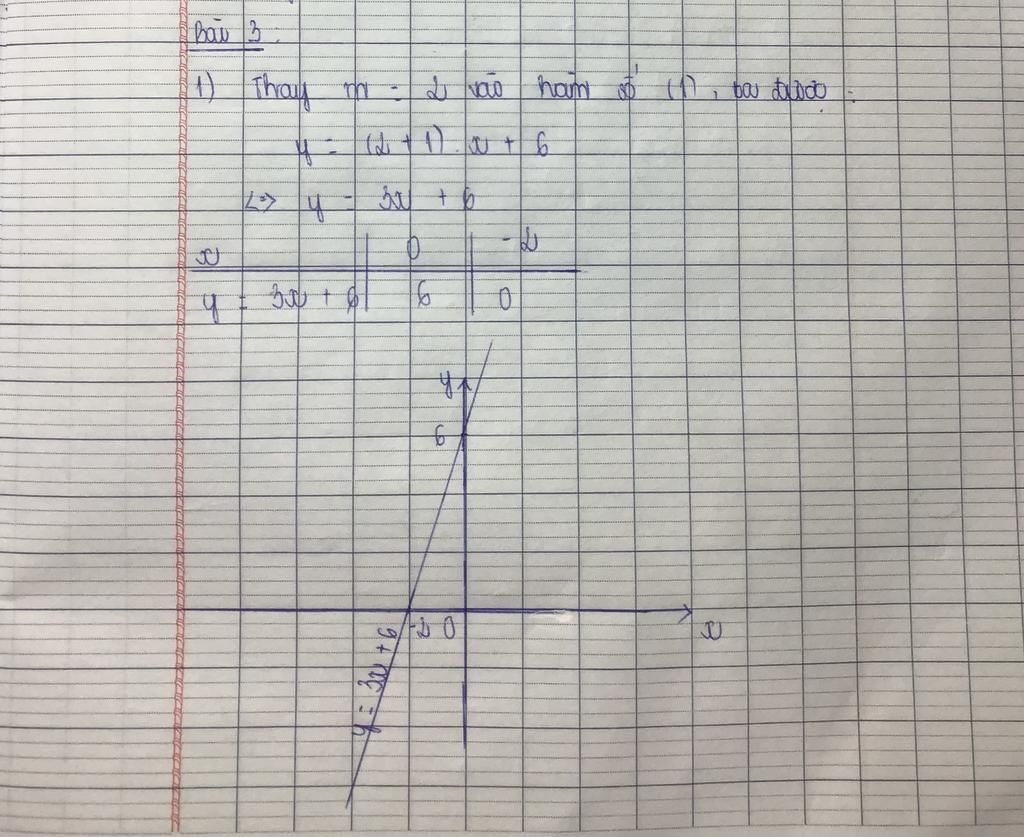 Bài 3:
1) Thay m = 2 vào hàm số (1), ta được:
y = (2 + 1). x + 6
<=> y = 3x + 6
x 0 -2
y = 3x + 6 6 0
y
6
-2 0
x
y = 3x + 6